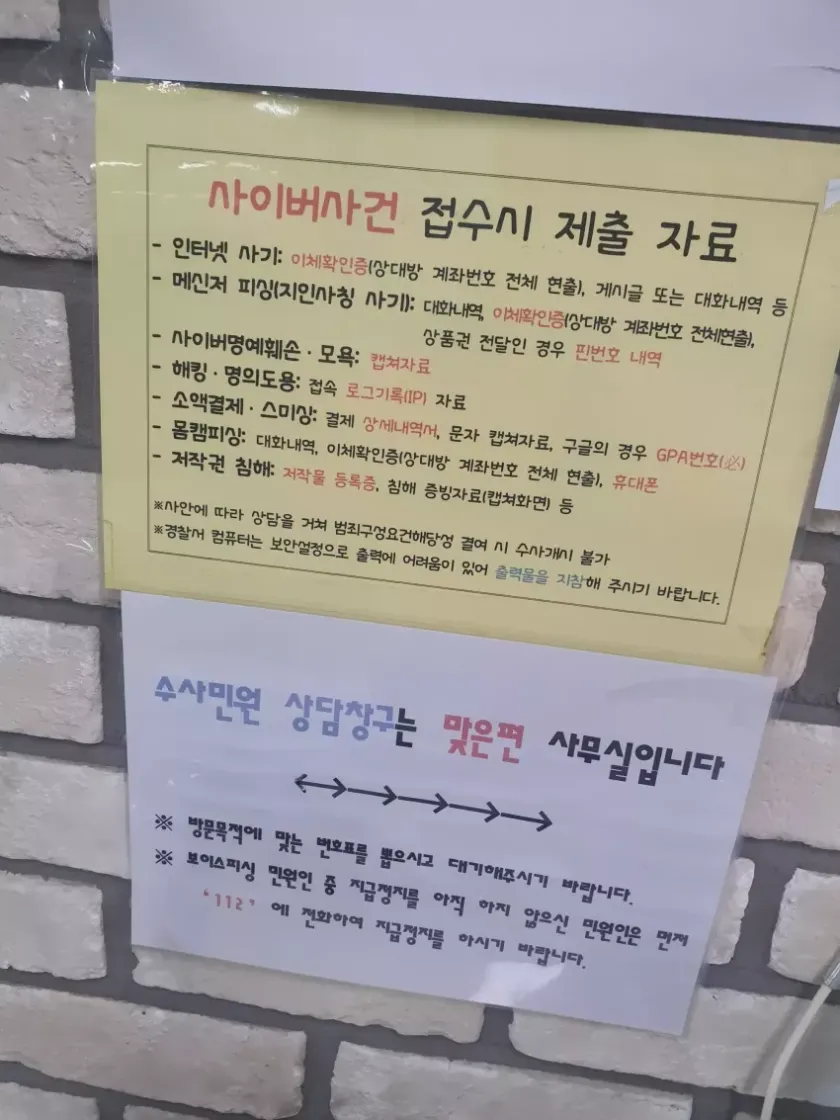 사이버사건 접수시 제출 자료
- 인터넷 사기: 이체확인증(상대방 계좌번호 전체 현출), 게시글 또는 대화내역 등
- 메신저 피싱(지인사칭 사기): 대화내역, 이체확인증(상대방 계좌번호 전체현출),
상품권 전달인 경우 핀번호 내역
- 사이버명예훼손·모욕: 캡쳐자료
- 해킹·명의도용: 접속 로그기록(IP) 자료
- 소액결제·스미싱: 결제 상세내역서, 문자 캡쳐자료, 구글의 경우 GPA번호(必)
- 몸캠피싱: 대화내역, 이체확인증(상대방 계좌번호 전체 현출), 휴대폰
- 저작권 침해: 저작물 등록증, 침해 증빙자료(캡쳐화면) 등
※사안에 따라 상담을 거쳐 범죄구성요건해당성 결여 시 수사개시 불가
※경찰서 컴퓨터는 보안설정으로 출력에 어려움이 있어 출력물을 지참해 주시기 바랍니다.
수사민원 상담창구는 맞은편 사무실입니다
※ 방문목적에 맞는 번호표를 뽑으시고 대기해주시기 바랍니다.
※ 보이스피싱 민원인 중 지급정지를 아직 하지 않으신 민원인은 먼저
"112" 에 전화하여 지급정지를 하시기 바랍니다.